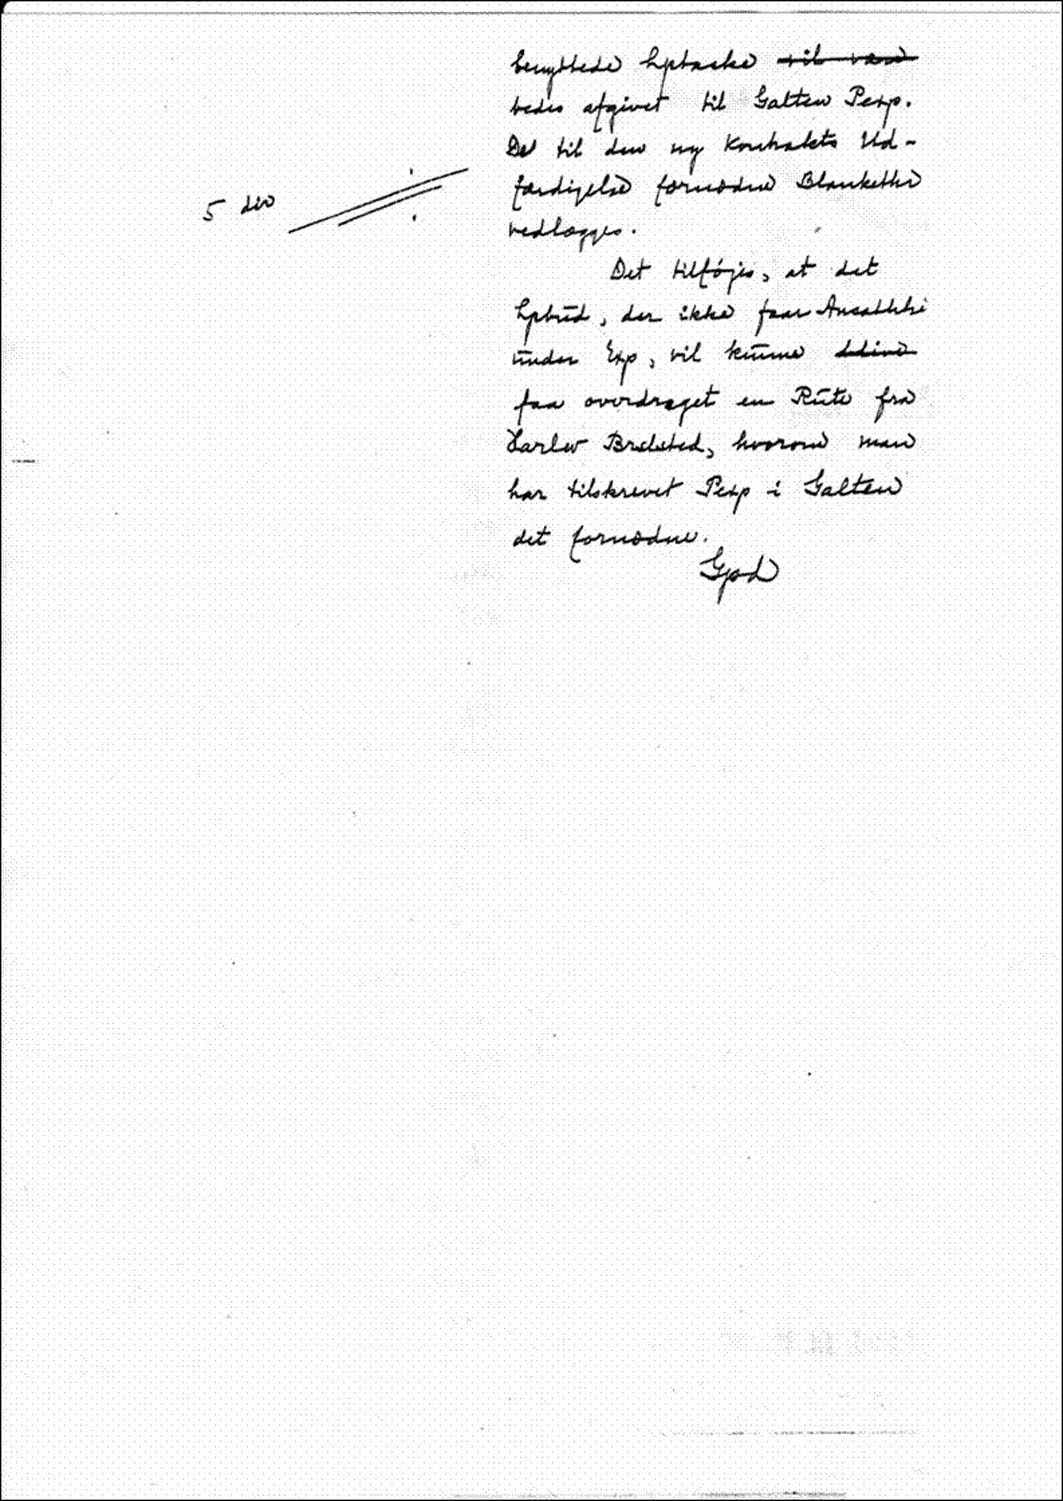 benyttede Lptaske vil være
bedes afgivet til Galten Pexp.
De til den ny Kontrakts Ud-
færdigelse fornødne Blanketter
vedlægges.
5 div
Det tilføjes, at det
Lpbud, der ikke faar Ansættelse
under Exp, vil kunne
faa overdraget en Rute fra
Harlev Brevsted, hvorom man
har tilskrevet Pexp i Galten
det fornødne.
Gpd